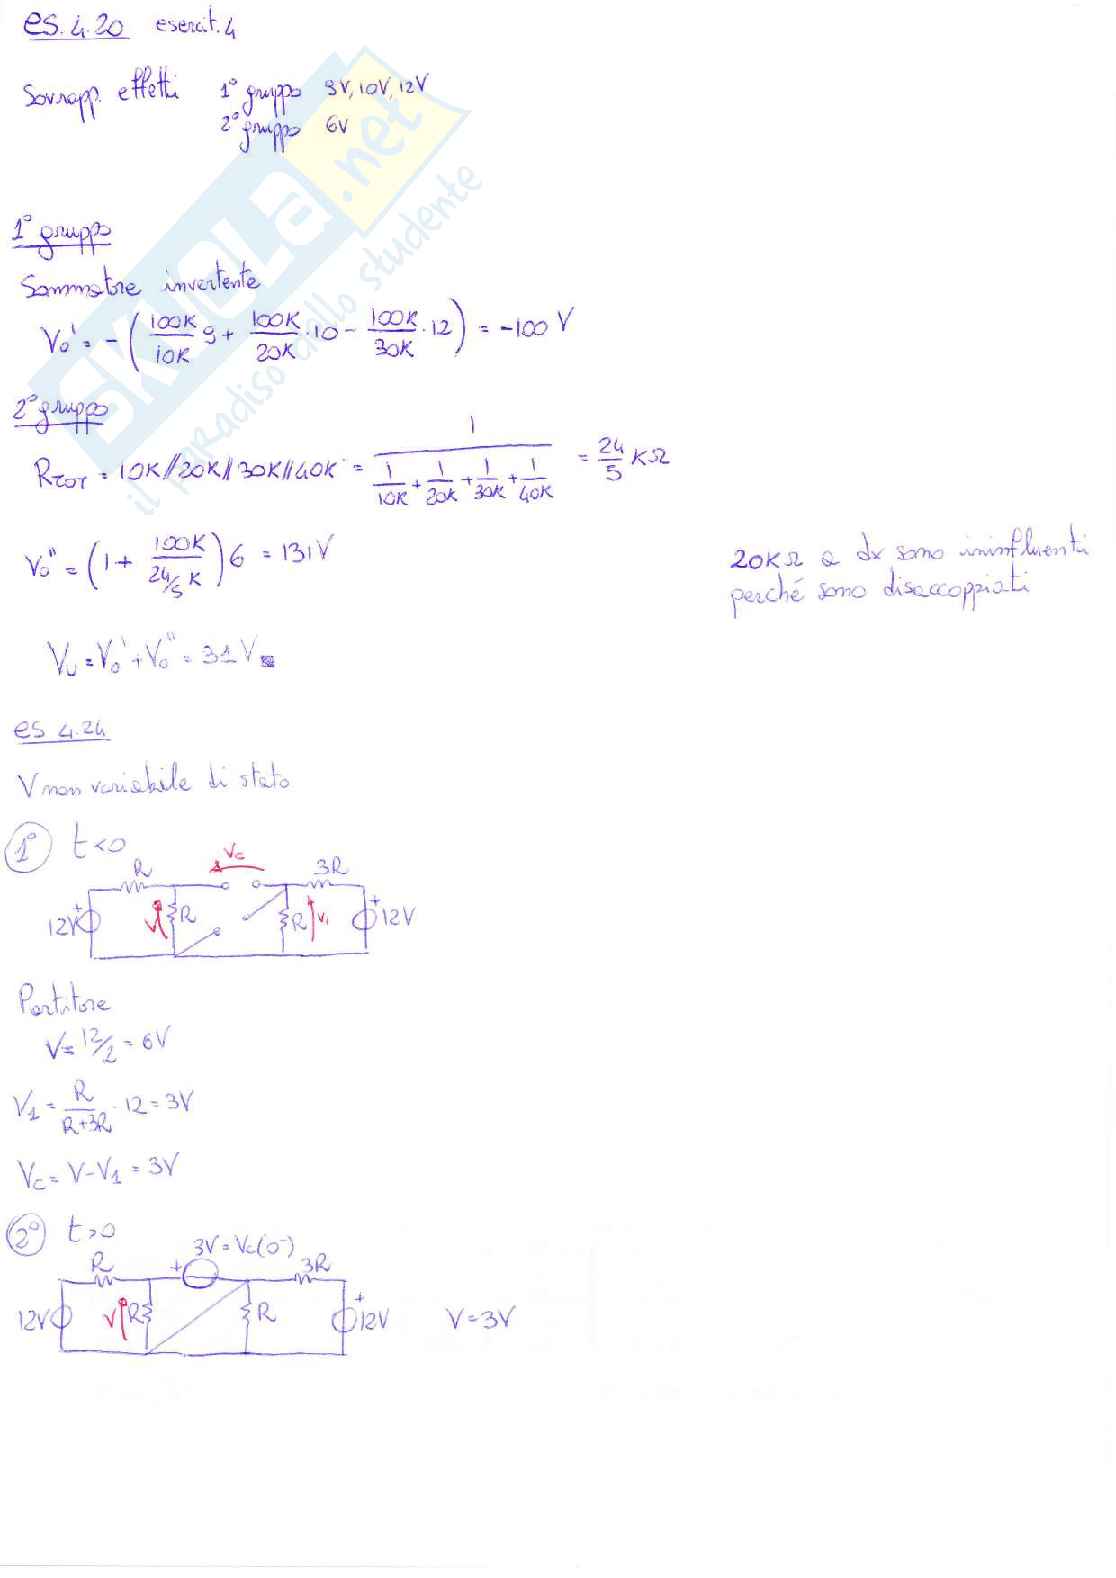 es. 4.20 esercit. 4
Sovrapp. effetti 1° gruppo 9V, 10V, 12V
2° gruppo 6V
1° gruppo
Sommatore invertente
V₀' = -(100K/10K 9 + 100K/20K · 10 - 100K/30K · 12) = -100 V
2° gruppo
R_TOT = 10K//20K//30K//40K = 1/(1/10K + 1/20K + 1/30K + 1/40K) = 24/5 KΩ
V₀'' = (1 + 100K/(24/5 K)) 6 = 131V
20KΩ a dx sono ininfluenti
perché sono disaccoppiati
V_U = V₀' + V₀'' = 31V
es 4.24
V non variabile di stato
1° t<0
Vc
R 3R
12V + V R R V₁ + 12V
Partitore
V = 12/2 = 6V
V₁ = R/(R+3R) · 12 = 3V
Vc = V - V₁ = 3V
2° t>0
3V = Vc(0⁻)
R + 3R
12V V R R + 12V V = 3V
SKUOLA.net
il paradiso dello studente